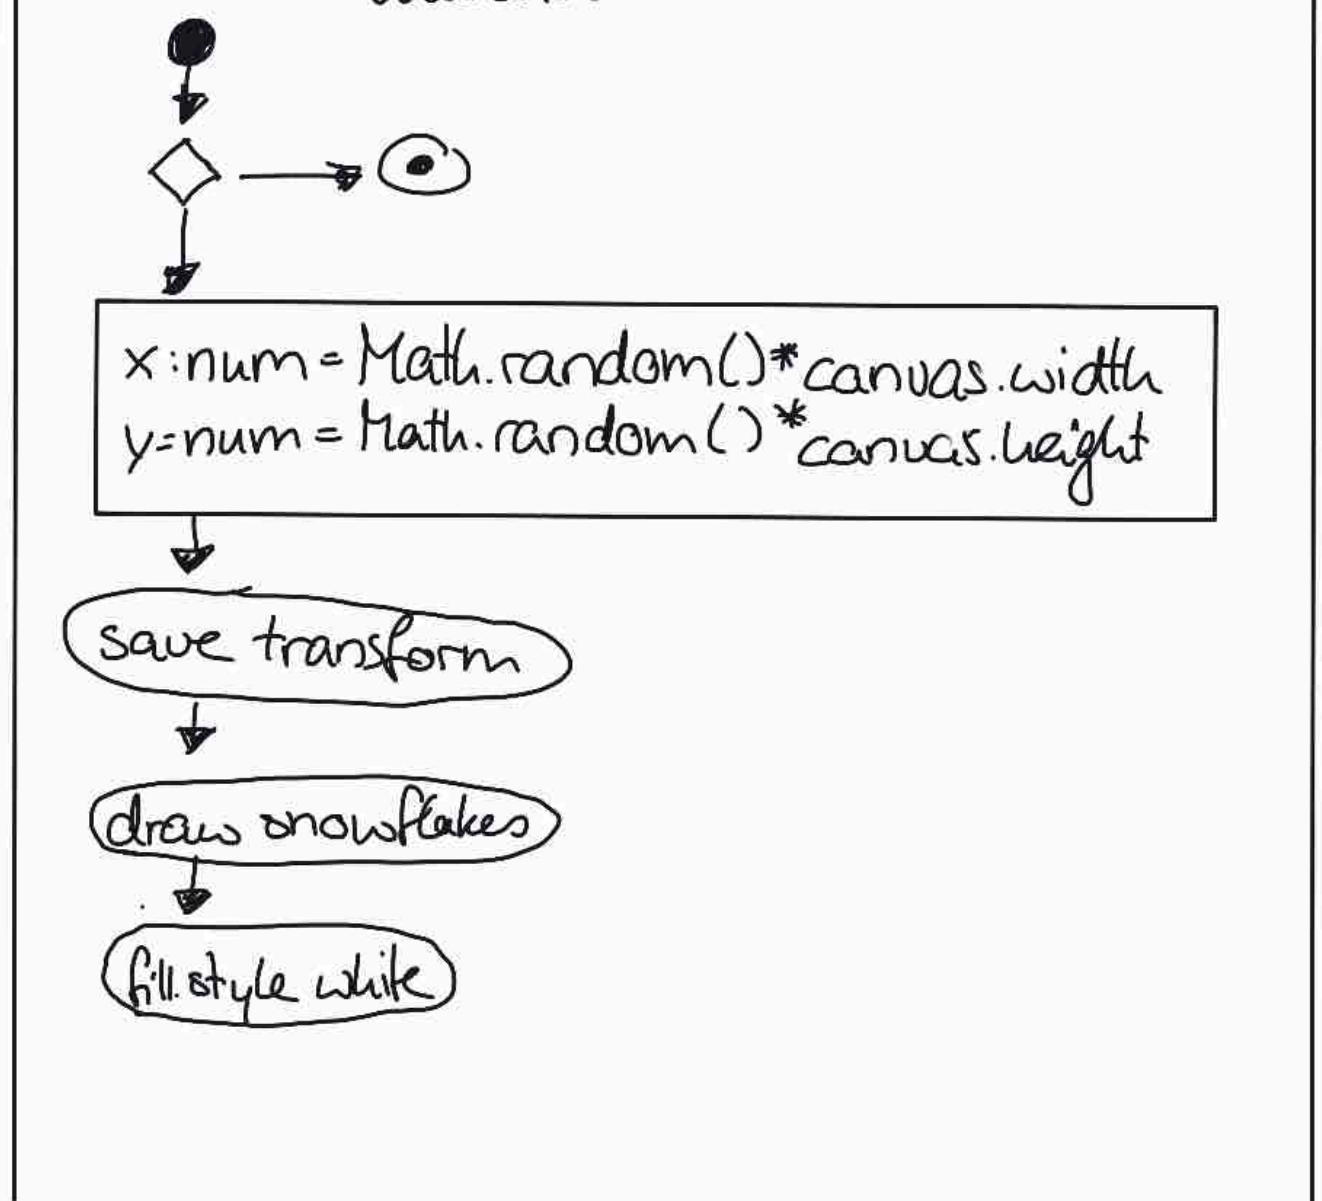 x:num = Math.random()*canvas.width
y=num = Math.random()*canvas.height
save transform
draw snowflakes
fill.style white